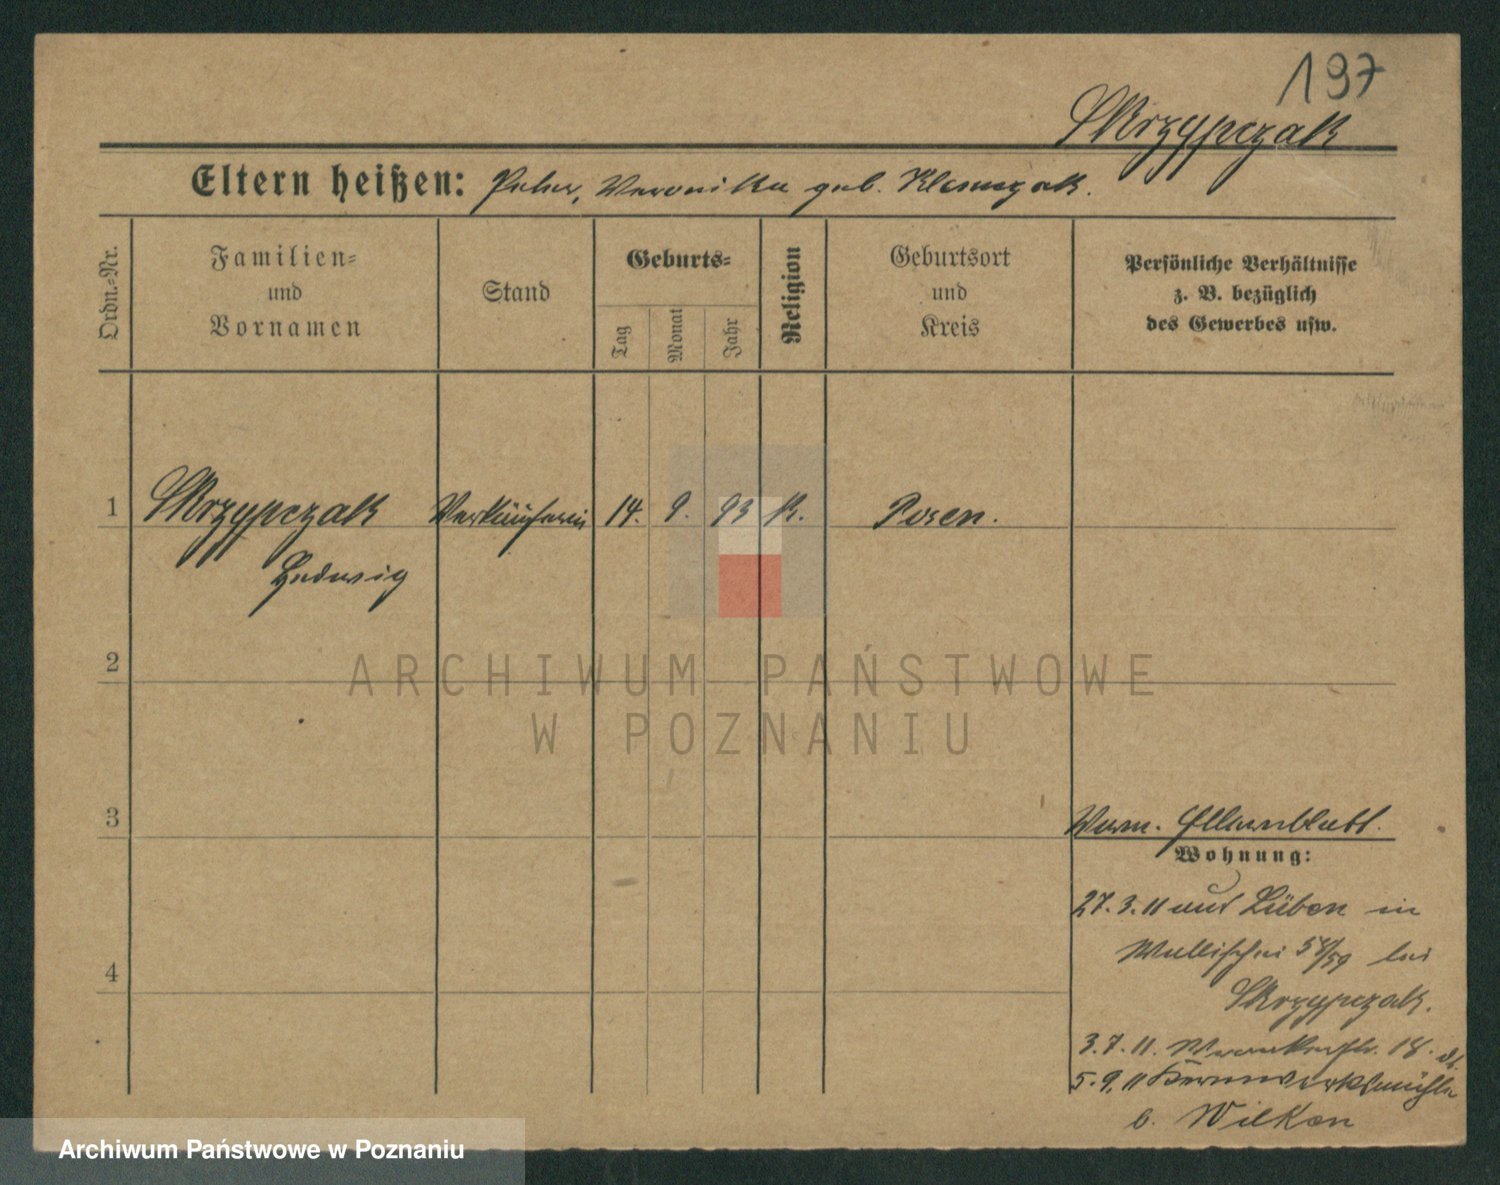 197
Skrzypczak
Eltern heißen: Peter, Veronika geb. Klemczak.
Ordn.-Nr.
Familien-
und
Vornamen
Stand
Geburts-
Tag
Monat
Jahr
Religion
Geburtsort
und
Kreis
Persönliche Verhältnisse
z. B. bezüglich
des Gewerbes usw.
1 Skrzypczak Verkäuferin 14. 9. 93 K. Posen.
Hedwig
2
ARCHIWUM PAŃSTWOWE
W POZNANIU
3
Verm. Elternblatt.
Wohnung:
27.3.11 aus Lüben in
Wallischei 58/59 bei
Skrzypczak.
4
3.7.11. 18.
5.9.11 Kernwerksmühle
b. Wilkon
Archiwum Państwowe w Poznaniu